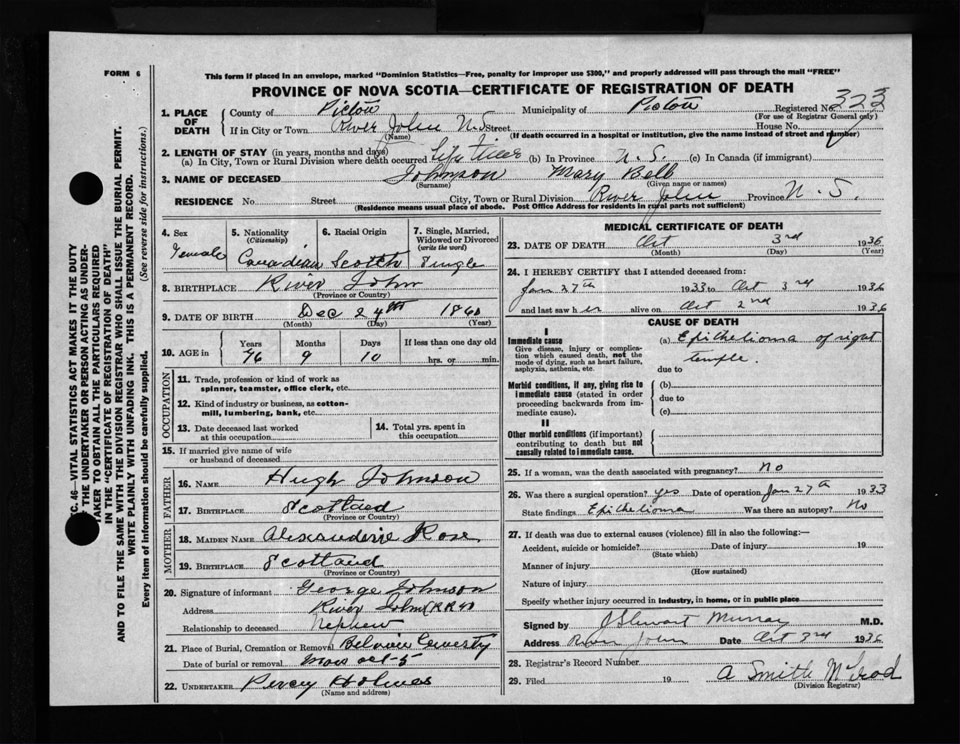 FORM 6
This form if placed in an envelope, marked "Dominion Statistics—Free, penalty for improper use $300," and properly addressed will pass through the mail "FREE"
PROVINCE OF NOVA SCOTIA—CERTIFICATE OF REGISTRATION OF DEATH
1. PLACE OF DEATH
County of Pictou Municipality of Pictou Registered No. 323
(For use of Registrar General only)
If in City or Town River John N.S. Street House No.
(Name) (If death occurred in a hospital or institution, give the name instead of street and number)
2. LENGTH OF STAY (in years, months and days)
(a) In City, Town or Rural Division where death occurred Life Time (b) In Province N.S. (c) In Canada (if immigrant)
3. NAME OF DECEASED Johnson Mary Bell
(Surname) (Given name or names)
RESIDENCE No. Street City, Town or Rural Division River John Province N.S.
(Residence means usual place of abode. Post Office Address for residents in rural parts not sufficient)
4. Sex Female
5. Nationality (Citizenship) Canadian
6. Racial Origin Scotch
7. Single, Married, Widowed or Divorced (write the word) Single
8. BIRTHPLACE River John
(Province or Country)
9. DATE OF BIRTH Dec 24th 1860
(Month) (Day) (Year)
10. AGE in Years Months Days If less than one day old
76 9 10 hrs. or min.
OCCUPATION
11. Trade, profession or kind of work as spinner, teamster, office clerk, etc.
12. Kind of industry or business, as cotton-mill, lumbering, bank, etc.
13. Date deceased last worked at this occupation
14. Total yrs. spent in this occupation
15. If married give name of wife or husband of deceased
FATHER
16. NAME Hugh Johnson
17. BIRTHPLACE Scotland
(Province or Country)
MOTHER
18. MAIDEN NAME Rose
19. BIRTHPLACE Scotland
(Province or Country)
20. Signature of informant George Johnson
Address River John
Relationship to deceased Nephew
21. Place of Burial, Cremation or Removal
Date of burial or removal Oct-5
22. UNDERTAKER Percy Holmes
(Name and address)
MEDICAL CERTIFICATE OF DEATH
23. DATE OF DEATH Oct 3rd 1936
(Month) (Day) (Year)
24. I HEREBY CERTIFY that I attended deceased from:
Jan 27th 1933 to Oct 3rd 1936
and last saw her alive on Oct 2nd 1936
CAUSE OF DEATH
I
Immediate cause
Give disease, injury or complication which caused death, not the mode of dying, such as heart failure, asphyxia, asthenia, etc.
(a) Epithelioma of right temple.
due to
Morbid conditions, if any, giving rise to immediate cause (stated in order proceeding backwards from immediate cause).
(b)
due to
(c)
II
Other morbid conditions (if important) contributing to death but not causally related to immediate cause.
25. If a woman, was the death associated with pregnancy? No
26. Was there a surgical operation? yes Date of operation Jan 27th 1933
State findings Epithelioma Was there an autopsy? No
27. If death was due to external causes (violence) fill in also the following:—
Accident, suicide or homicide? Date of injury 19
(State which)
Manner of injury
(How sustained)
Nature of injury
Specify whether injury occurred in industry, in home, or in public place
Signed by J Stewart Murray M.D.
Address River John Date Oct 3rd 1936
28. Registrar's Record Number
29. Filed 19 A Smith McLeod
(Division Registrar)
46—VITAL STATISTICS ACT MAKES IT THE DUTY
THE UNDERTAKER OR PERSON ACTING AS UNDER-
TAKER TO OBTAIN ALL THE PARTICULARS REQUIRED
IN THE "CERTIFICATE OF REGISTRATION OF DEATH"
AND TO FILE THE SAME WITH THE DIVISION REGISTRAR WHO SHALL ISSUE THE BURIAL PERMIT.
WRITE PLAINLY WITH UNFADING INK. THIS IS A PERMANENT RECORD.
Every item of information should be carefully supplied. (See reverse side for instructions.)